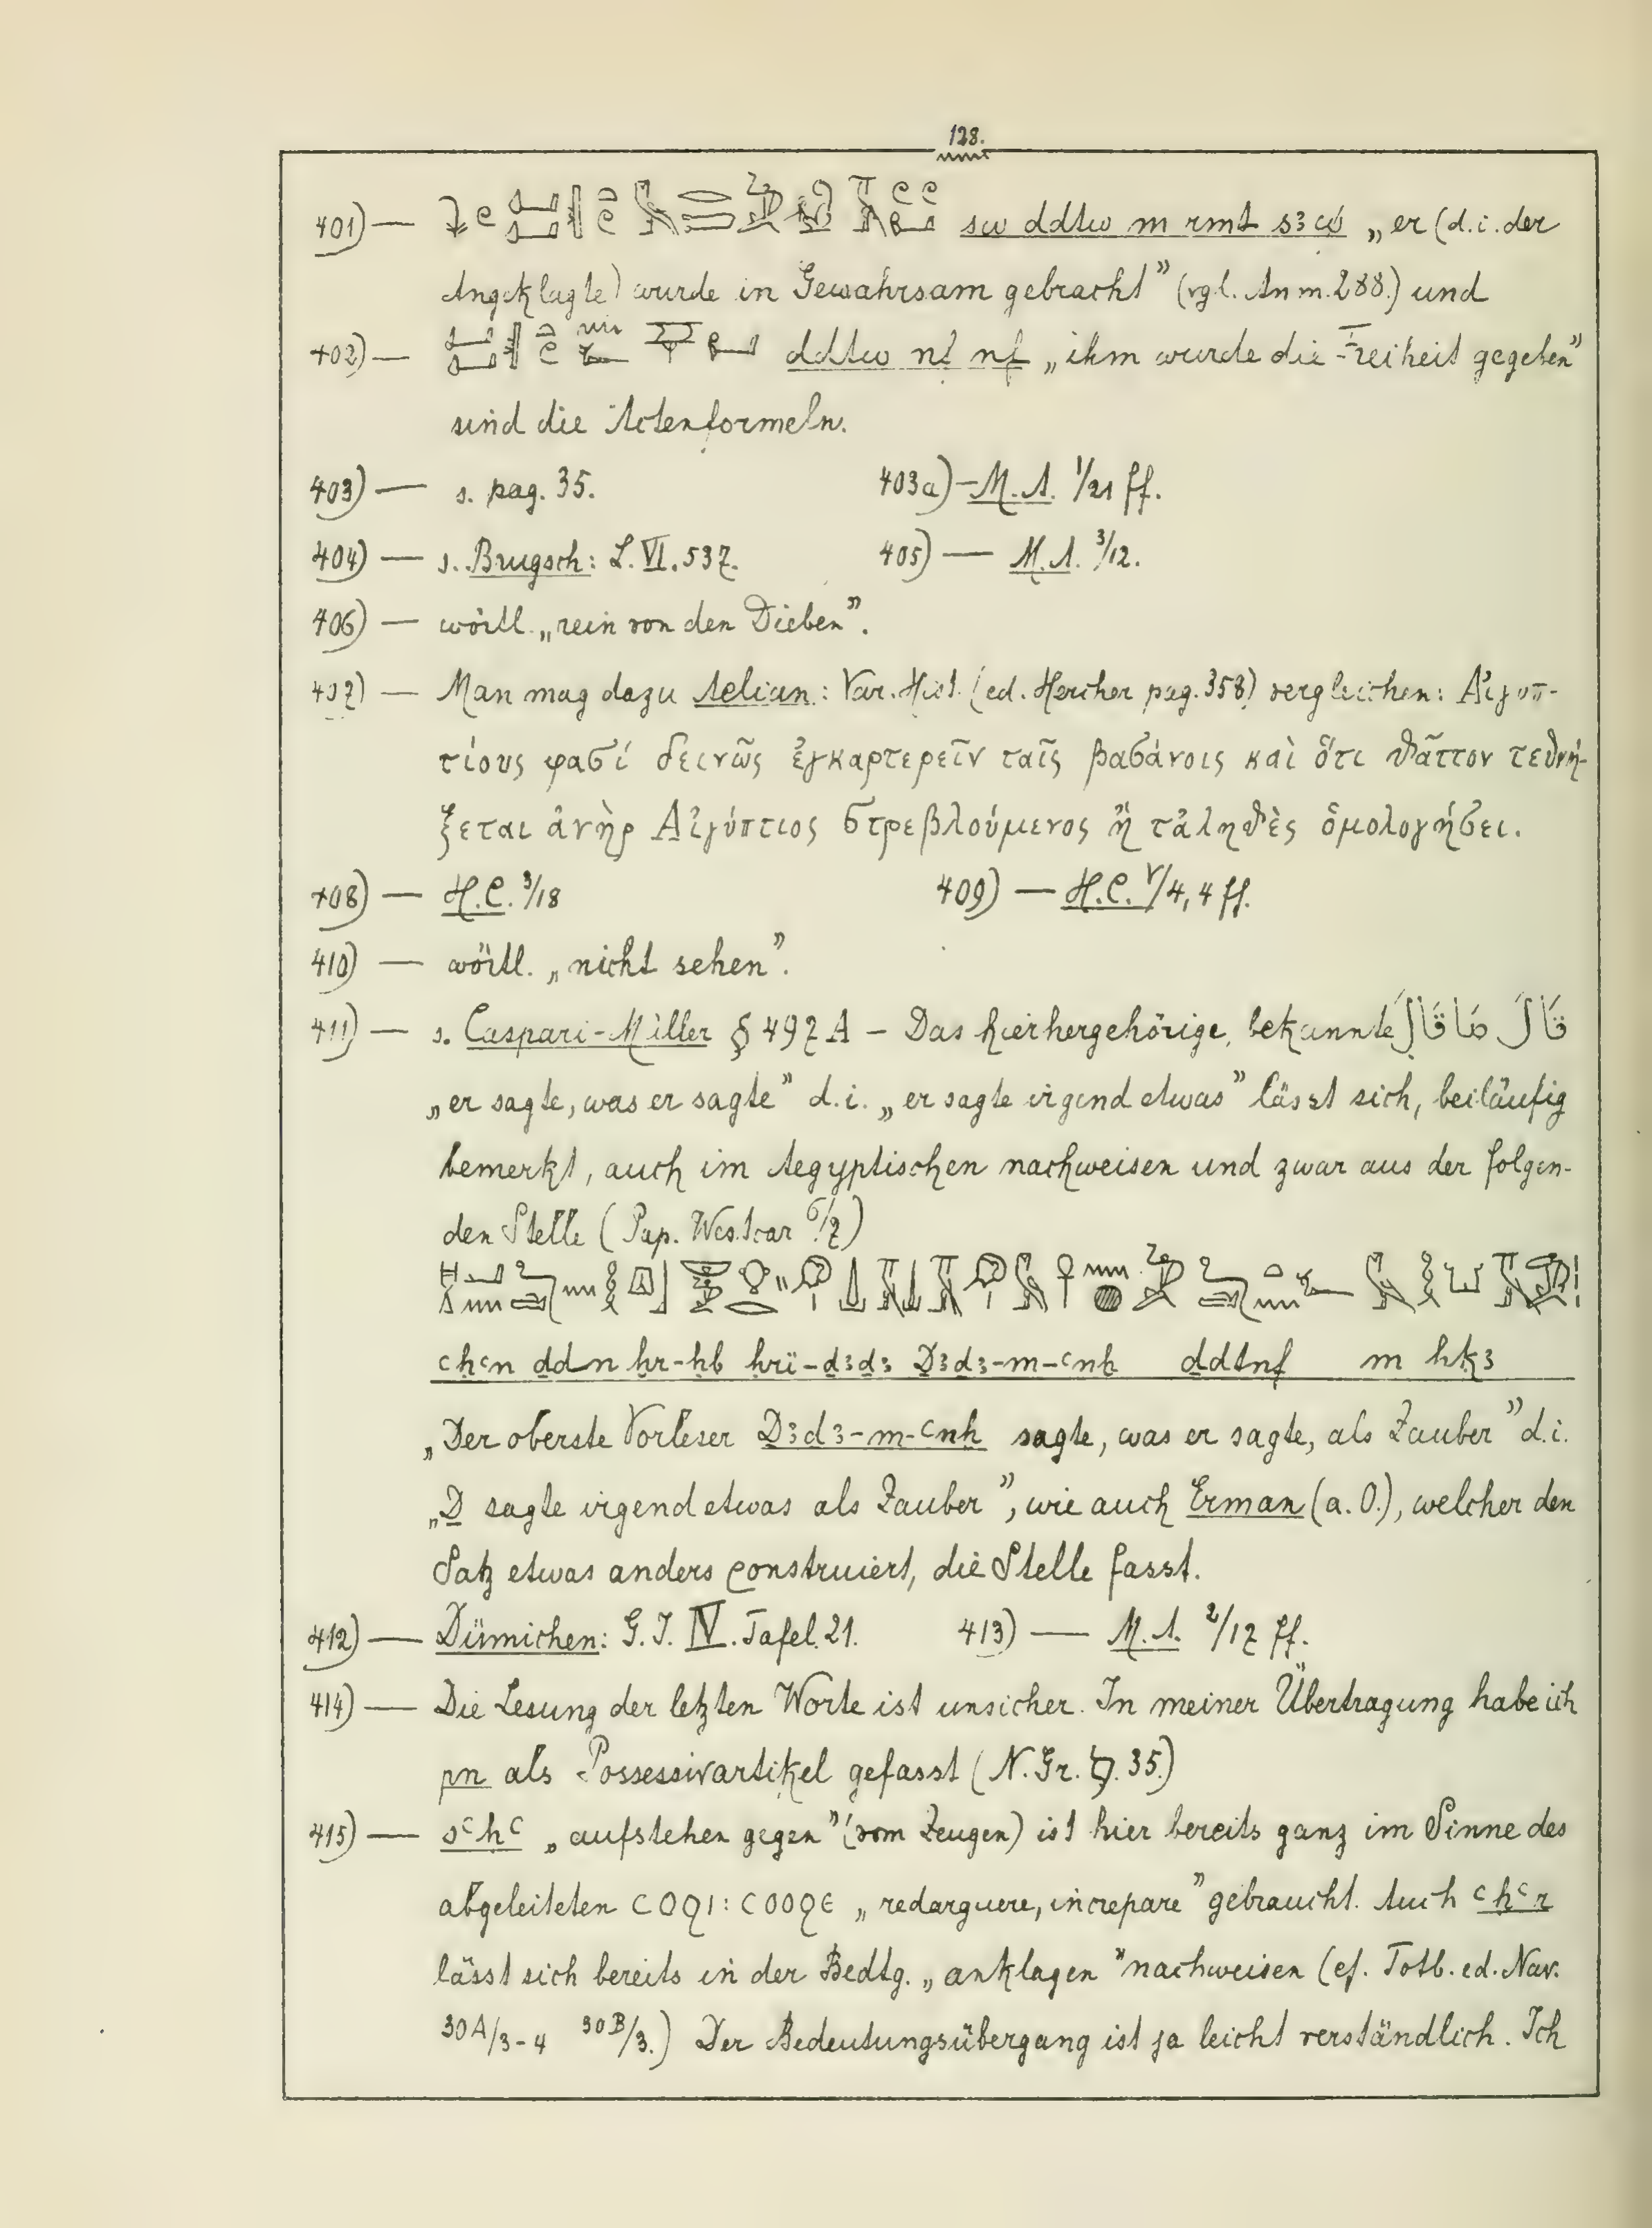 128.
401) — sw ddtw m rmt s3w „er (d.i. der
Angeklagte) wurde in Gewahrsam gebracht” (vgl. Anm. 288.) und
402) — ddtw nf „ihm wurde die Freiheit gegeben”
sind die Actenformeln.
403) — s. pag. 35. 403a) — M.A. 1/21 ff.
404) — s. Brugsch: L. VI. 537. 405) — M.A. 3/12.
406) — wörtl. „rein von den Dieben”.
407) — Man mag dazu Aelian: Var. Hist. (ed. Hercher pag. 358) vergleichen: Αἰγυπ-
τίους φασί δεινῶς ἐγκαρτερεῖν ταῖς βασάνοις καὶ ὅτι θᾶττον τεθνή-
ξεται ἀνὴρ Αἰγύπτιος στρεβλούμενος ἢ τἀληθὲς ὁμολογήσει.
408) — H.C. 3/18 409) — H.C. V/4, 4 ff.
410) — wörtl. „nicht sehen”.
411) — s. Caspari-Müller § 497 A — Das hierhergehörige, bekannte قَالَ مَا قَالَ
„er sagte, was er sagte” d.i. „er sagte irgend etwas” lässt sich, beiläufig
bemerkt, auch im Aegyptischen nachweisen und zwar aus der folgen-
den Stelle (Pap. Westcar 6/7)
ꜥḥꜥn ḏdn ẖr-ḥb ḥrï-ḏ3ḏ3 Ḏ3ḏ3-m-ꜥnḫ ḏdtnf m ḥk3
„Der oberste Vorleser Ḏ3ḏ3-m-ꜥnḫ sagte, was er sagte, als Zauber” d.i.
„Ḏ sagte irgend etwas als Zauber”, wie auch Erman (a. O.), welcher den
Satz etwas anders construiert, die Stelle fasst.
412) — Dümichen: G.I. IV. Tafel. 21. 413) — M.A. 2/17 ff.
414) — Die Lesung der letzten Worte ist unsicher. In meiner Übertragung habe ich
pn als Possessivartikel gefasst (N. Gr. §. 35.)
415) — sꜥḥꜥ „aufstehen gegen” (vom Zeugen) ist hier bereits ganz im Sinne des
abgeleiteten ⲥⲟϩⲓ: ⲥⲟⲟϩⲉ „redarguere, increpare” gebraucht. Auch ꜥḥꜥ r
lässt sich bereits in der Bedtg. „anklagen” nachweisen (cf. Totb. ed. Nav.
30A/3-4 30B/3.) Der Bedeutungsübergang ist ja leicht verständlich. Ich